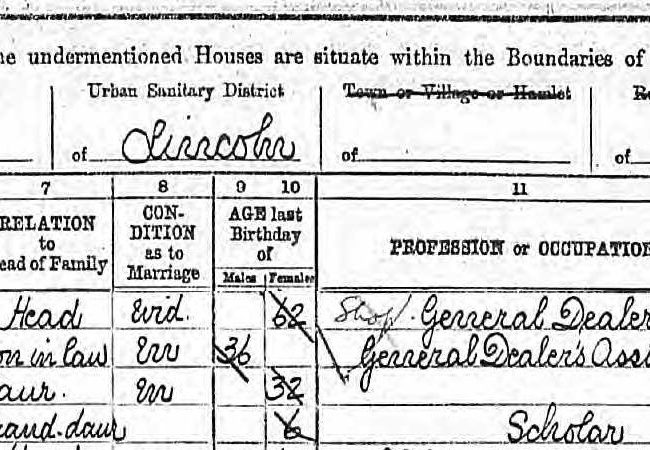 he undermentioned Houses are situate within the Boundaries of
Urban Sanitary District
Town or Village or Hamlet
of Lincoln
of
of
7 8 9 10 11
RELATION
to
ead of Family
CON-
DITION
as to
Marriage
AGE last
Birthday
of
Males Females
PROFESSION or OCCUPATION
Head Wid. 62 Shop General Dealer
on in law M 36 General Dealer's Assi
aur. M 32
rand-daur 6 Scholar